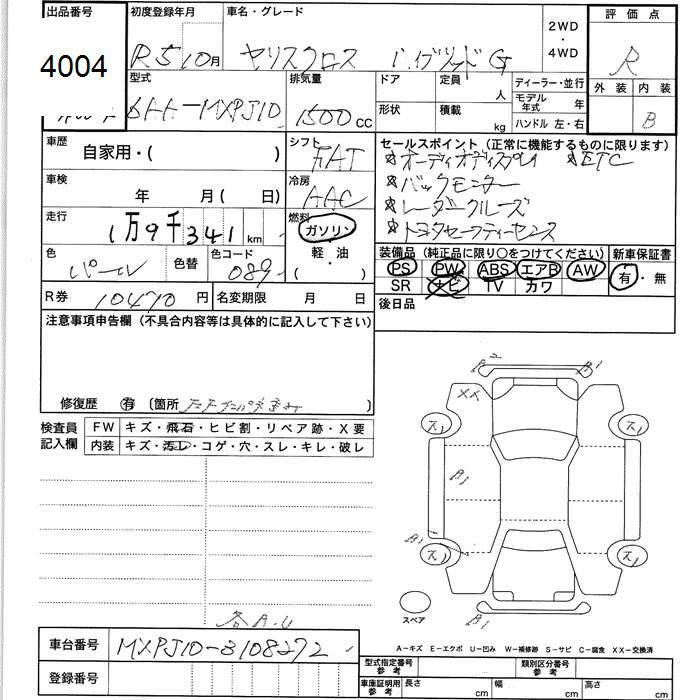 出品番号 初度登録年月 車名・グレード 2WD・4WD 評価点
4004 R5 10月 ヤリスクロス ハイブリッドG R
型式 排気量 ドア 定員 人 ディーラー・並行 外装 内装
6AA-MXPJ10 1500cc 形状 積載 kg モデル年式 年 B
ハンドル 左・右
車歴 自家用・( ) シフト FAT セールスポイント (正常に機能するものに限ります)
*オーディオディスプレイ *ETC
車検 年 月( 日) 冷房 AAC *バックモニター
*レーダークルーズ
走行 1万9千341km 燃料 ガソリン・軽・油( ) *トヨタセーフティーセンス
色 パール 色替 色コード 089 装備品 (純正品に限り○をつけてください) 新車保証書
PS PW ABS エアB AW 有・無
SR ナビ TV カワ
R券 10470円 名変期限 月 日 後日品
注意事項申告欄 (不具合内容等は具体的に記入して下さい)
修復歴 有 (箇所 )
検査員記入欄 FW キズ・飛石・ヒビ割・リペア跡・X要
内装 キズ・汚レ・コゲ・穴・スレ・キレ・破レ
B2 B1
XX
ス1 ス1
B1
B1
ス1 ス1
スペア B1
各A.U
A-キズ E-エクボ U-凹み W-補修跡 S-サビ C-腐食 XX-交換済
車台番号 MXPJ10-3108272
型式指定番号参考 類別区分番号参考
登録番号 車庫証明用参考 長さ cm 幅 cm 高さ cm